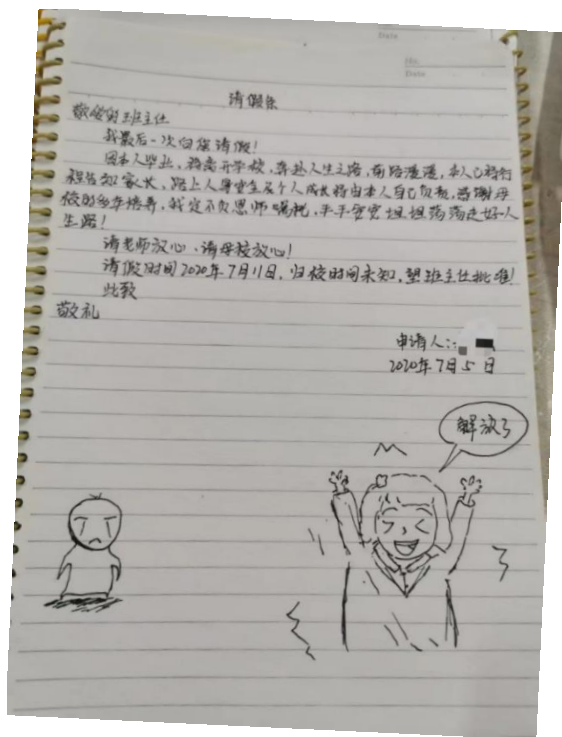 Date
No.
Date
请假条
敬爱的班主任
我最后一次向您请假!
因本人毕业,将离开学校,奔赴人生之路,前路漫漫,本人已将行
程告知家长,路上人身安全及个人成长将由本人自己负责,感谢母
校的多年培养,我定不负恩师嘱托,平平安安坦坦荡荡走好人
生路!
请老师放心,请母校放心!
请假时间2020年7月11日,归校时间未知,望班主任批准!
此致
敬礼
申请人::
2020年7月5日
解放了